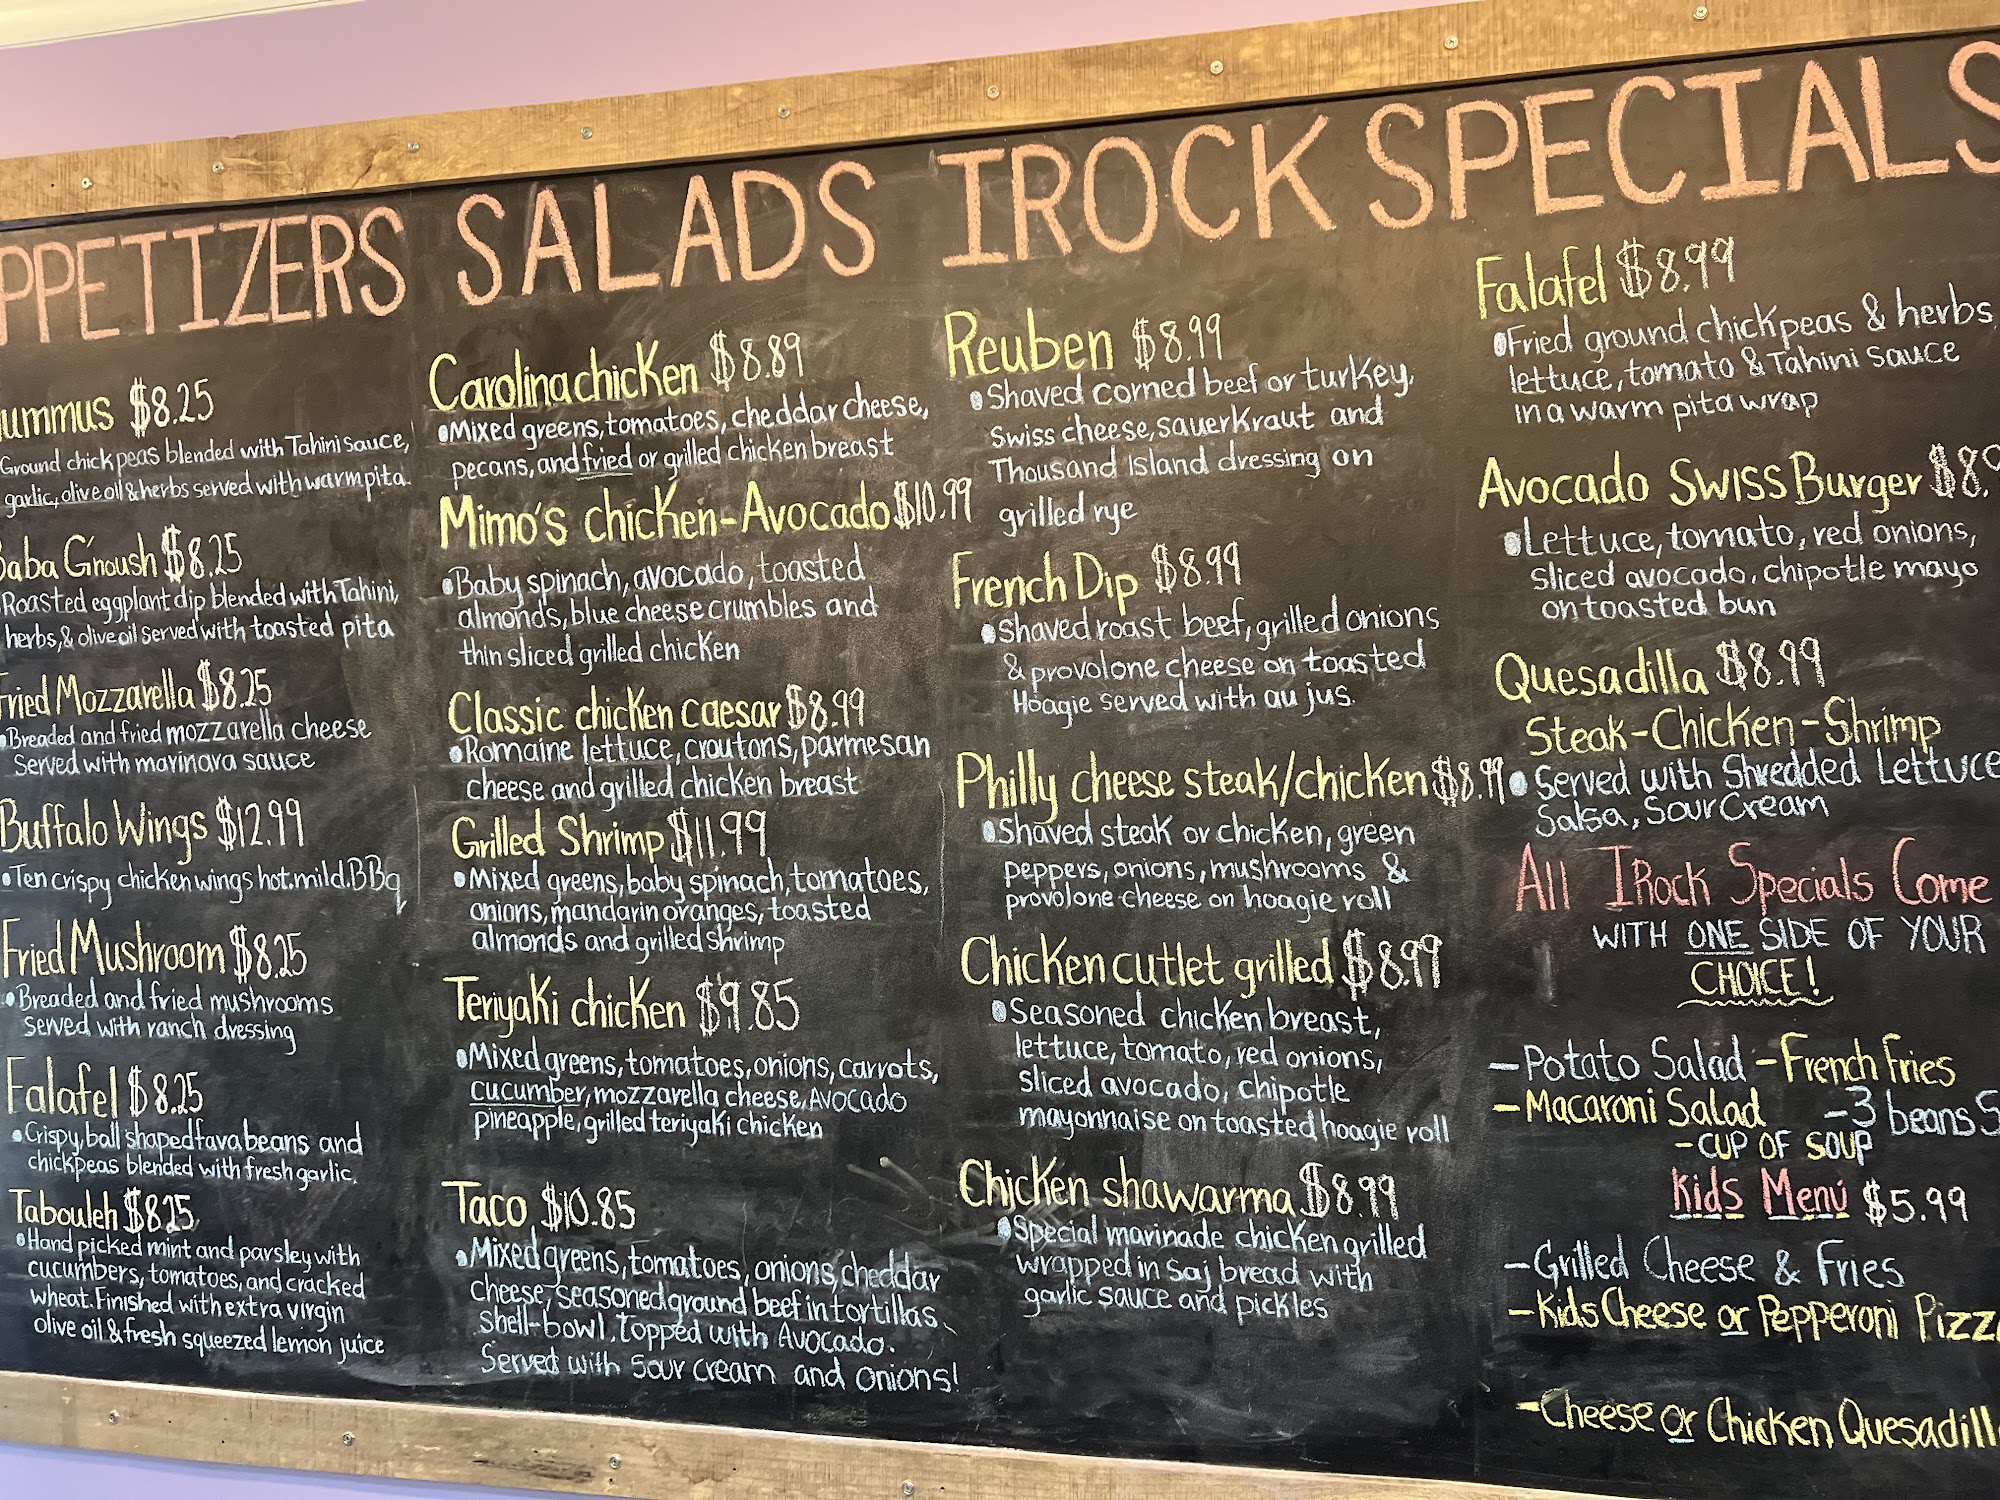 PPETIZERS
ummus $8.25
Ground chickpeas blended with Tahini sauce,
garlic, olive oil & herbs served with warm pita.
Baba G'noush $8.25
Roasted eggplant dip blended with Tahini,
herbs, & olive oil served with toasted pita
Fried Mozzarella $8.25
•Breaded and fried mozzarella cheese
served with marinara sauce
Buffalo Wings $12.99
•Ten crispy chicken wings hot.mild.BBq
Fried Mushroom $8.25
•Breaded and fried mushrooms
served with ranch dressing
Falafel $8.25
•Crispy, ball shaped fava beans and
chickpeas blended with fresh garlic.
Tabouleh $8.25
•Hand picked mint and parsley with
cucumbers, tomatoes, and cracked
wheat. Finished with extra virgin
olive oil & fresh squeezed lemon juice
SALADS
Carolina chicken $8.89
•Mixed greens, tomatoes, cheddar cheese,
pecans, and fried or grilled chicken breast
Mimo's chicken-Avocado $10.99
•Baby spinach, avocado, toasted
almonds, blue cheese crumbles and
thin sliced grilled chicken
Classic chicken caesar $8.99
•Romaine lettuce, croutons, parmesan
cheese and grilled chicken breast
Grilled Shrimp $11.99
•Mixed greens, baby spinach, tomatoes,
onions, mandarin oranges, toasted
almonds and grilled shrimp
Teriyaki chicken $9.85
•Mixed greens, tomatoes, onions, carrots,
cucumber, mozzarella cheese, Avocado
pineapple, grilled teriyaki chicken
Taco $10.85
•Mixed greens, tomatoes, onions, cheddar
cheese, seasoned ground beef in tortillas
shell-bowl, topped with Avocado.
Served with sour cream and onions!
IROCK SPECIALS
Reuben $8.99
•Shaved corned beef or turkey,
swiss cheese, sauerkraut and
Thousand Island dressing on
grilled rye
French Dip $8.99
•Shaved roast beef, grilled onions
& provolone cheese on toasted
Hoagie served with au jus.
Philly cheese steak/chicken $8.99
•Shaved steak or chicken, green
peppers, onions, mushrooms &
provolone cheese on hoagie roll
Chicken cutlet grilled $8.99
•Seasoned chicken breast,
lettuce, tomato, red onions,
sliced avocado, chipotle
mayonnaise on toasted hoagie roll
Chicken shawarma $8.99
•Special marinade chicken grilled
wrapped in Saj bread with
garlic sauce and pickles
Falafel $8.99
•Fried ground chickpeas & herbs,
lettuce, tomato & Tahini sauce
in a warm pita wrap
Avocado Swiss Burger $8.9
•Lettuce, tomato, red onions,
sliced avocado, chipotle mayo
on toasted bun
Quesadilla $8.99
Steak-Chicken-Shrimp
•Served with Shredded Lettuce
Salsa, Sour Cream
All IRock Specials Come
WITH ONE SIDE OF YOUR
CHOICE!
-Potato Salad -French Fries
-Macaroni Salad -3 beans S
-CUP OF SOUP
Kids Menu $5.99
-Grilled Cheese & Fries
-Kids Cheese or Pepperoni Pizz
-Cheese or Chicken Quesadill